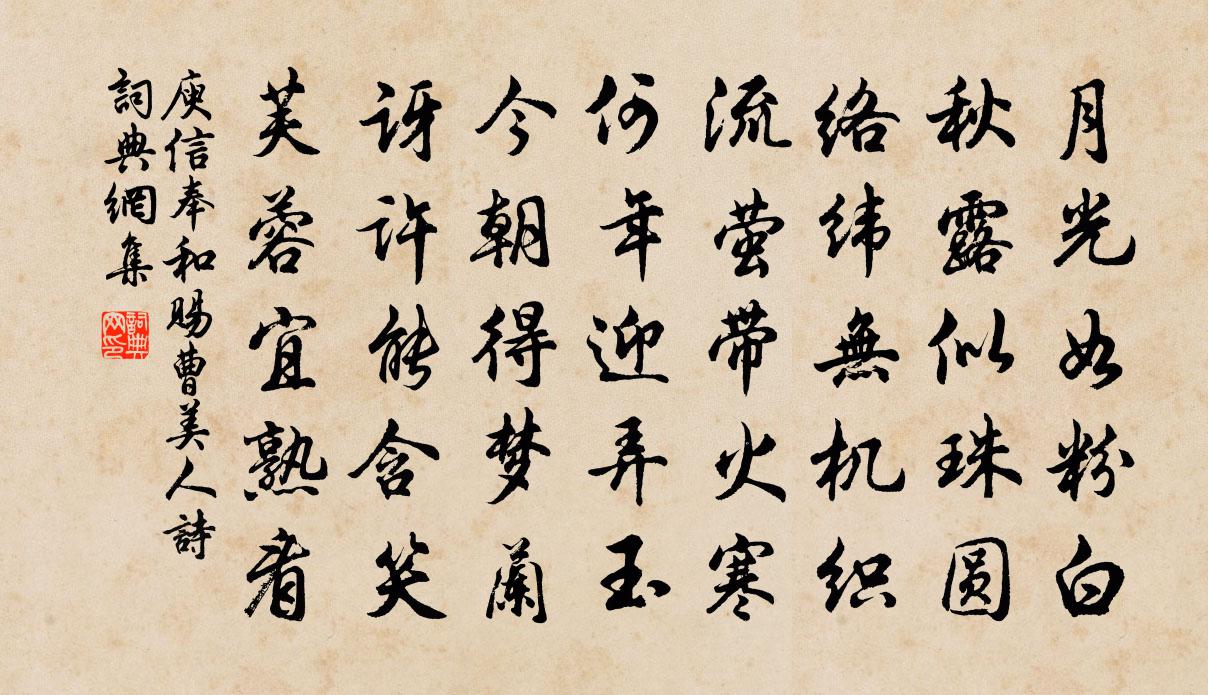 月光如粉白
秋露似珠圆
络纬無机织
流萤带火寒
何年迎弄玉
今朝得梦蘭
讶许能含笑
芙蓉宜熟看
庾信奉和賜曹美人詩
詞典網集
詞典网印